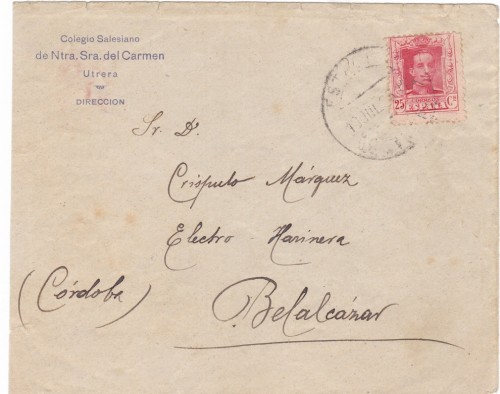 Colegio Salesiano
de Ntra. Sra. del Carmen
Utrera
DIRECCION
25 CORREOS Cs
ESPAÑA
Sr. D.
Crispulo Márquez
Electro-Harinera
(Córdoba)
Belalcázar